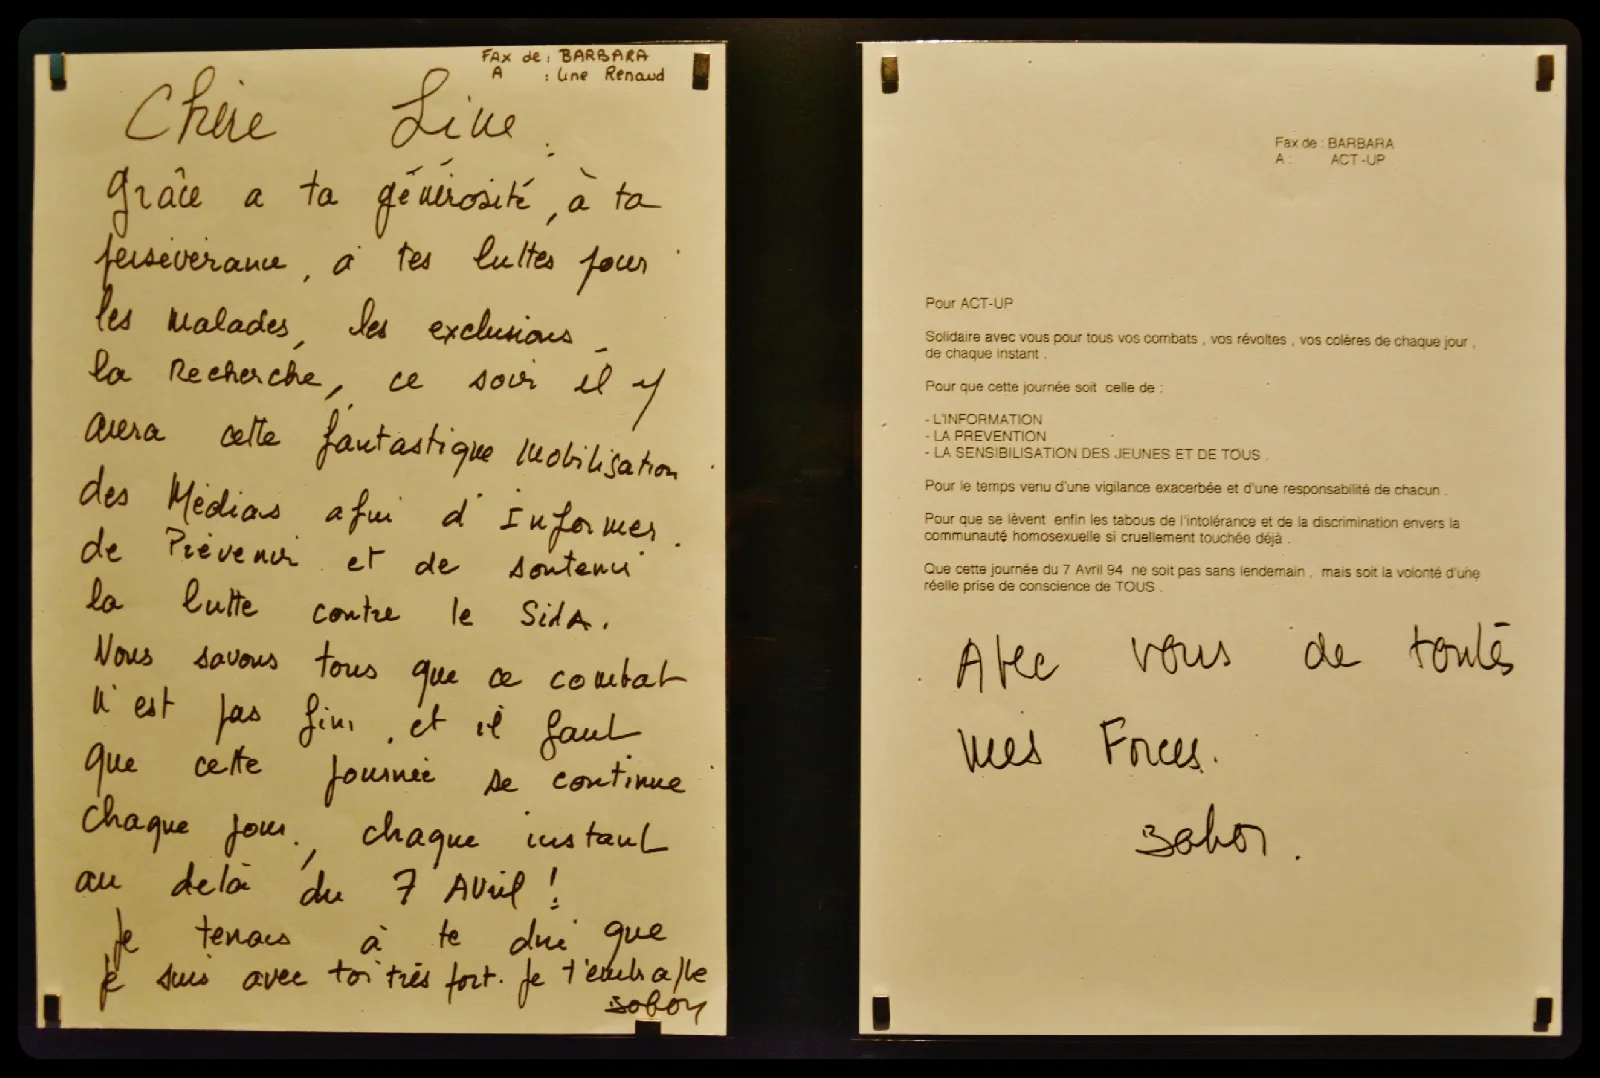 FAX de : BARBARA
A : Line Renaud
Chère Line :
Grâce a ta générosité, à ta
persévérance, à tes luttes pour
les malades, les exclusions,
la Recherche, ce soir il y
aura cette fantastique Mobilisation
des Médias afin d'Informer.
de Prévenir et de soutenir
la lutte contre le SidA.
Nous savons tous que ce combat
n'est pas fini, et il faut
que cette journée se continue
chaque jour, chaque instant
au delà du 7 Avril !
Je tenais à te dire que
je suis avec toi très fort. Je t'embrasse
Fax de : BARBARA
A : ACT-UP
Pour ACT-UP
Solidaire avec vous pour tous vos combats , vos révoltes , vos colères de chaque jour ,
de chaque instant .
Pour que cette journée soit celle de :
- L'INFORMATION
- LA PREVENTION
- LA SENSIBILISATION DES JEUNES ET DE TOUS .
Pour le temps venu d'une vigilance exacerbée et d'une responsabilité de chacun .
Pour que se lèvent enfin les tabous de l'intolérance et de la discrimination envers la
communauté homosexuelle si cruellement touchée déjà .
Que cette journée du 7 Avril 94 ne soit pas sans lendemain , mais soit la volonté d'une
réelle prise de conscience de TOUS .
Avec vous de toutes
mes Forces.